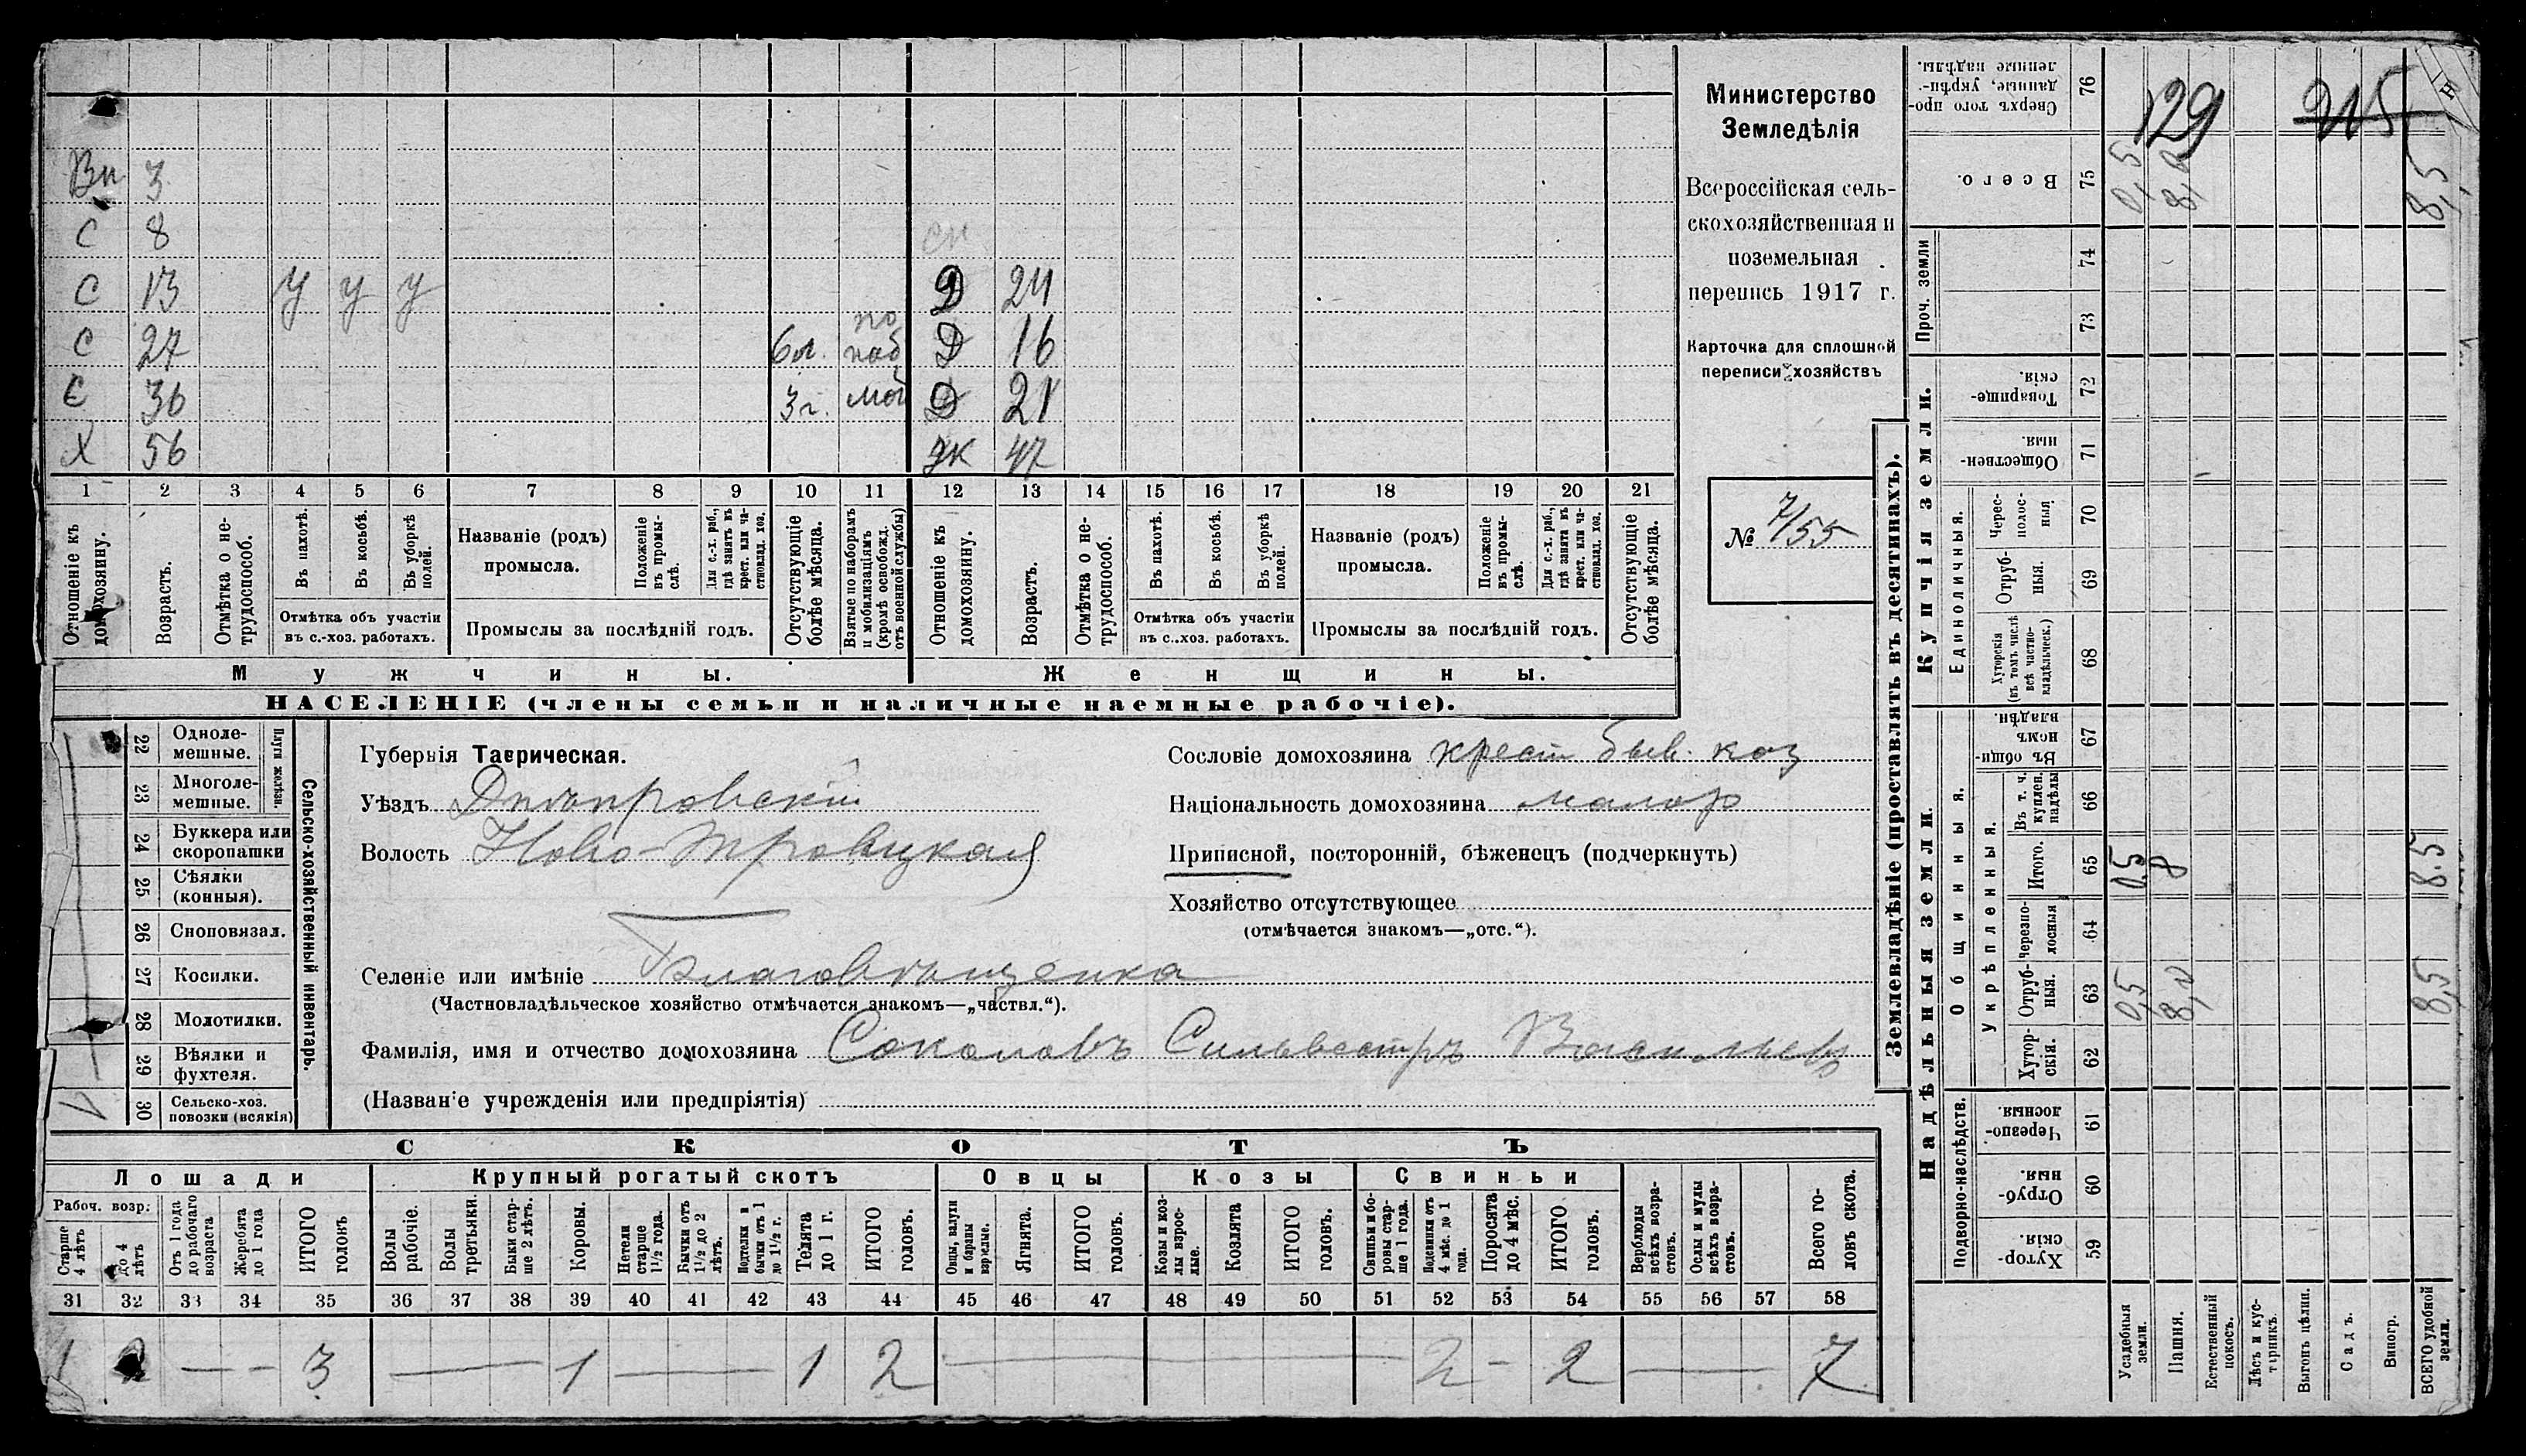 Вн 3
С 8
С 13 у у у Д 24
С 27 6 м. по наб Д 16
С 36 3 г. моб Д 21
Х 56 ЖК 47
1 2 3 4 5 6 7 8 9 10 11 12 13 14 15 16 17 18 19 20 21
Отношеніе къ домохозяину.
Возрастъ.
Отмѣтка о не-трудоспособ.
Въ пахотѣ.
Въ косьбѣ.
Въ уборкѣ полей.
Отмѣтка объ участіи въ с.-хоз. работахъ.
Названіе (родъ) промысла.
Положеніе въ промы-слѣ.
Для с.-х. раб., гдѣ занятъ въ крест. или ча-стновлад. хоз.
Промыслы за послѣдній годъ.
Отсутствующіе болѣе мѣсяца.
Взятые по наборамъ и мобилизаціямъ (кромѣ освобожд. отъ военной службы)
Отношеніе къ домохозяину.
Возрастъ.
Отмѣтка о не-трудоспособ.
Въ пахотѣ.
Въ косьбѣ.
Въ уборкѣ полей.
Отмѣтка объ участіи въ с..хоз. работахъ.
Названіе (родъ) промысла.
Положеніе въ промы-слѣ.
Для с.-х. раб., гдѣ занята въ крест. или ча-стновлад. хоз.
Промыслы за послѣдній годъ.
Отсутствующіе болѣе мѣсяца.
Мужчины. Женщины.
НАСЕЛЕНІЕ (члены семьи и наличные наемные рабочіе).
Министерство
Земледѣлія
Всероссійская сель-
скохозяйственная и
поземельная
перепись 1917 г.
Карточка для сплошной
переписи хозяйствъ
№ 7/55
22 Одноле-мешные.
23 Многоле-мешные.
Плуги желѣзн.
24 Буккера или скоропашки
25 Сѣялки (конныя).
26 Сноповязал.
27 Косилки.
28 Молотилки.
29 Вѣялки и фухтеля.
30 Сельско-хоз. повозки (всякія)
Сельско-хозяйственный инвентарь.
Губернія Таврическая.
Уѣздъ Днѣпровскій
Волость Ново-Троицкая
Селеніе или имѣніе Благовѣщенка
(Частновладѣльческое хозяйство отмѣчается знакомъ—„частвл.“).
Фамилія, имя и отчество домохозяина Соколовъ Сильвестръ Васильев
(Названіе учрежденія или предпріятія)
Сословіе домохозяина крест быв. каз
Національность домохозяина малор
Приписной, посторонній, бѣженецъ (подчеркнуть)
Хозяйство отсутствующее
(отмѣчается знакомъ—„отс.“).
СКОТЪ
Лошади Крупный рогатый скотъ Овцы Козы Свиньи
Рабоч. возр.
Старше 4 лѣтъ
до 4 лѣтъ
Отъ 1 года до рабочаго возраста
Жеребята до 1 года
ИТОГО головъ
Волы рабочіе.
Волы третьяки.
Быки стар-ше 2 лѣтъ.
Коровы.
Нетели старше 1½ года.
Бычки отъ 1½ до 2 лѣтъ.
Нетелки и бычки отъ 1 до 1½ г.
Телята до 1 г.
ИТОГО головъ.
Овцы, валухи и бараны взрослые.
Ягнята.
ИТОГО головъ.
Козы и коз-лы взрос-лые.
Козлята
ИТОГО головъ.
Свиньи и бо-ровы стар-ше 1 года.
Подсвинки отъ 4 мѣс. до 1 года.
Поросята до 4 мѣс.
ИТОГО головъ.
Верблюды всѣхъ возра-стовъ.
Ослы и мулы всѣхъ возра-стовъ.
Всего го-ловъ скота.
31 32 33 34 35 36 37 38 39 40 41 42 43 44 45 46 47 48 49 50 51 52 53 54 55 56 57 58
1 2 — - 3 — 1 — 1 2 — 2 - 2 — 7
Землевладѣніе (проставлять въ десятинахъ).
Надѣльныя земли. Купчія земли. Проч. земли
Подворно-наслѣдств.
Общинныя.
Укрѣпленныя.
Единоличныя.
76 Сверхъ того про-данные, укрѣп-ленные надѣлы.
129 215
75 Всего. 0,5 8,0 8,5
74
73
72 Товарище-скія.
71 Обществен-ныя.
70 Черес-полос-ныя
69 Отруб-ныя.
68 Хуторскія (въ томъ числѣ всѣ частно-владѣльческ.)
67 Въ общи-номъ владѣн.
66 Въ т. ч. куплен. надѣлы
65 Итого. 0,5 8 8.5
64 Черезпо-лосныя
63 Отруб-ныя. 0,5 8,0 8,5
62 Хутор-скія.
61 Черезпо-лосныя.
60 Отруб-ныя.
59 Хутор-скія.
Усадебныя земли.
Пашня.
Естественный покосъ.
Лѣсъ и кус-тарникъ.
Выгонъ цѣлин.
Садъ.
Виногр.
ВСЕГО удобной земли.